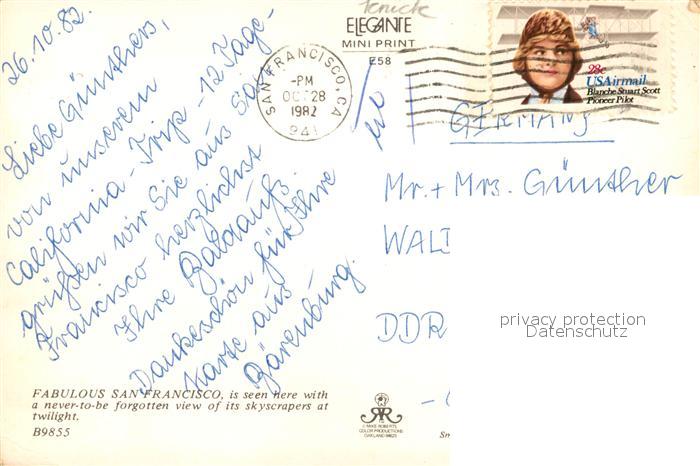 26.10.82.
Liebe Günthers,
von unserem
California-Trip - 12 Tage-
grüßen wir Sie aus San
Francisco herzlichst
Ihre Baldaufs.
Dankeschön für Ihre
Karte aus
Bärenburg.
FABULOUS SAN FRANCISCO, is seen here with
a never-to-be forgotten view of its skyscrapers at
twilight.
B9855
ELEGANTE
MINI PRINT
E58
SAN FRANCISCO, CA
-PM
OCT 28
1982
941
28c
USAirmail
Blanche Stuart Scott
Pioneer Pilot
GERMANY
Mr. + Mrs. Günther
WAL
DDR
privacy protection
Datenschutz
© MIKE ROBERTS
COLOR PRODUCTIONS
OAKLAND 94623